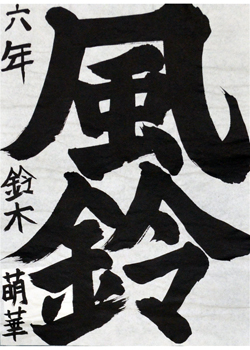 風鈴
六年 鈴木 萌華